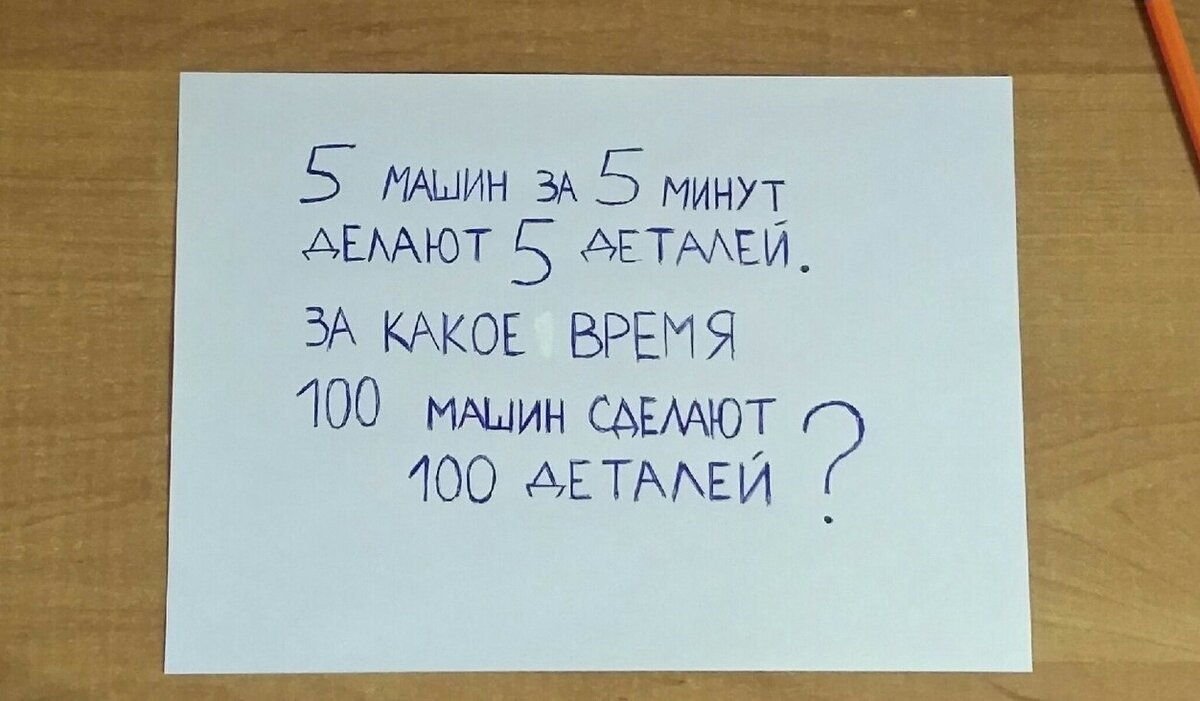 5 МАШИН ЗА 5 МИНУТ
ДЕЛАЮТ 5 ДЕТАЛЕЙ.
ЗА КАКОЕ ВРЕМЯ
100 МАШИН СДЕЛАЮТ
100 ДЕТАЛЕЙ?